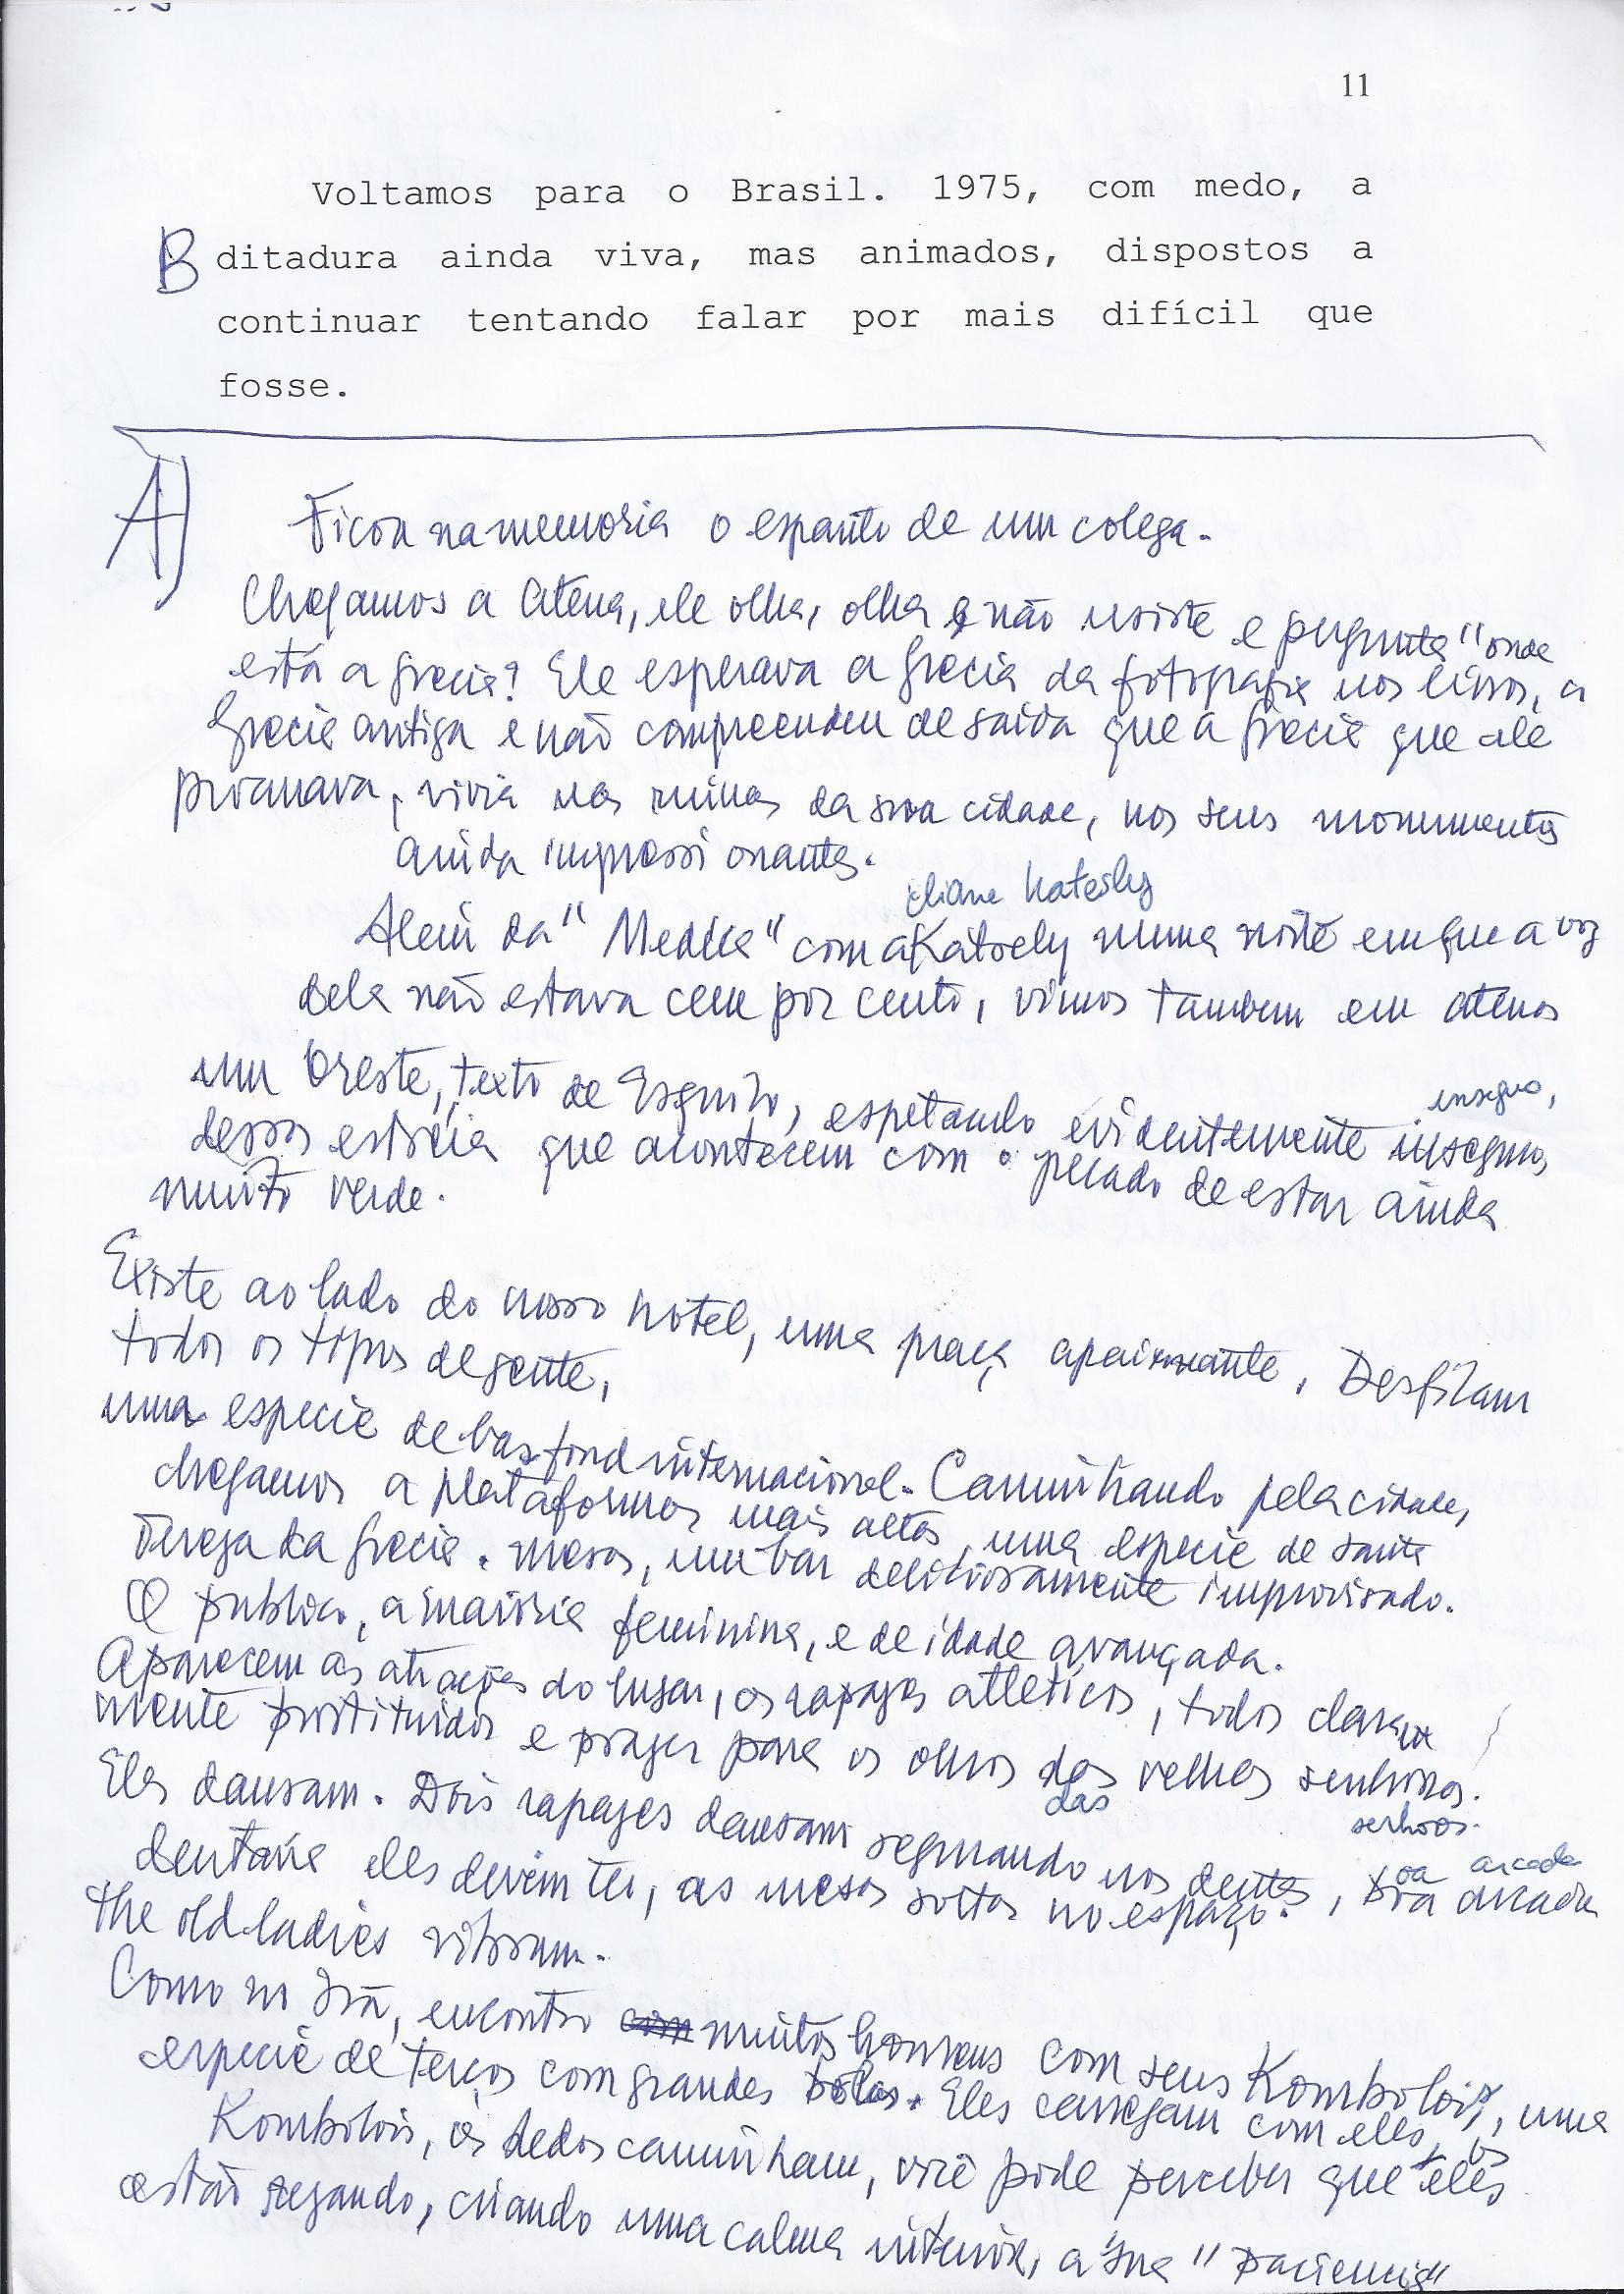 11
Voltamos para o Brasil. 1975, com medo, a
B ditadura ainda viva, mas animados, dispostos a
continuar tentando falar por mais difícil que
fosse.
A) Ficou na memoria o espanto de um colega.
Chegamos a Atena, ele olha, olha e não resiste e pergunta "onde
está a Grecia? Ele esperava a Grecia da fotografia nos livros, a
Grecia antiga e não compreendeu de saida que a Grecia que ele
procurava, vivia nas ruinas da sua cidade, nos seus monumentos
ainda impressionantes.
eliane
Alem da "Medéa" com a numa noite em que a voz
dela não estava cem por cento, vimos tambem em Atenas
um Oreste, texto de Esquilo, espetaculo evidentemente inseguro,
inseguro,
dessas estréia que acontecem com o pecado de estar ainda
muito verde.
Existe ao lado do nosso hotel, uma praça apaixonante, Desfilam
todos os tipos de gente,
uma especie de bas fond internacional. Caminhando pela cidade,
chegamos a plataformas mais altas, uma especie de Santa
Tereza da Grecia. Mesas, um bar deliciosamente improvisado.
O publico, a maioria feminina, e de idade avançada.
Aparecem as atrações do lugar, os rapazes atleticos, todos clara
mente prostituidos e prazer para os olhos das velhas senhoras.
das
senhoras.
Eles dansam. Dois rapazes dansam segurando nos dentes, boa arcada
boa arcada
dentária eles devem ter, as mesas soltas no espaço.
the old ladies vibram.
Como no Irã, encontro com muitos homens com seus Kombolois, uma
especie de terços com grandes bolas. Eles carregam com eles, os
Kombolois, os dedos caminham, você pode perceber que eles
estão rezando, criando uma calma interior, a sua "paciencia"